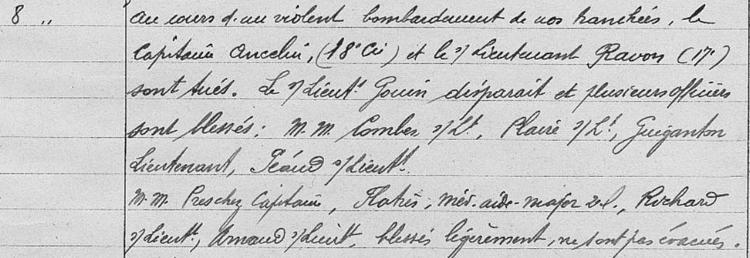 8 „ Au cours d'un violent bombardement de nos tranchées, le
Capitaine Ancelin, (18e Cie) et le s/Lieutenant Ravon (17e)
sont tués. Le s/Lieutt Gouin disparait et plusieurs officiers
sont blessés : M.M. Combes s/Lt, Plaire s/Lt, Guiganton
Lieutenant, Péaud s/Lieutt.
M.M. Preschez Capitaine, Flatrès, méd. aide-major 2e cl., Rochard
s/Lieutt, Arnaud s/Lieutt, blessés légèrement, ne sont pas évacués.